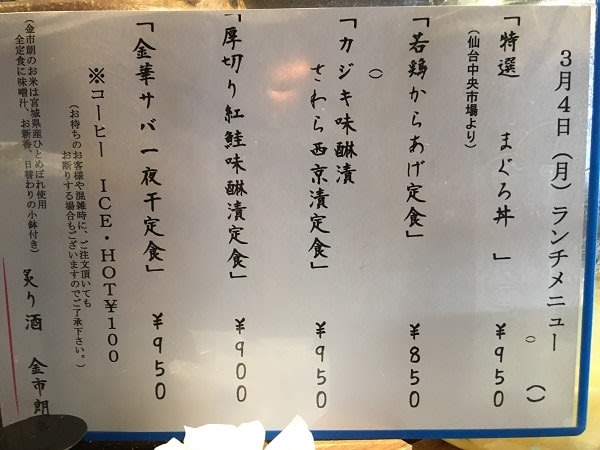 3月4日(月)ランチメニュー
「特選　まぐろ丼　」　¥950
(仙台中央市場より)
「若鶏からあげ定食」　¥850
「カジキ味醂漬
さわら西京漬定食」　¥950
「厚切り紅鮭味醂漬定食」　¥900
「金華サバ一夜干定食」　¥950
※コーヒー　ICE・HOT¥100
(お待ちのお客様や混雑時に、ご注文頂いても
お断りする場合もございますのでご了承下さい。)
炙り酒　金市朗
(金市朗のお米は宮城県産ひとめぼれ使用
全定食に味噌汁、お新香、日替わりの小鉢付き)